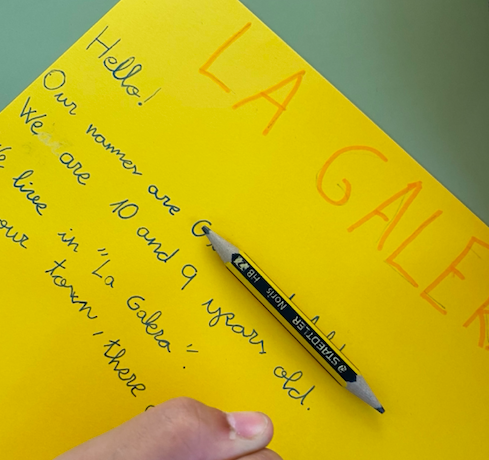 LA GALER
Hello!
Our names are G
We are 10 and 9 years old.
We live in "La Galera".
our town, there
STAEDTLER Noris HB